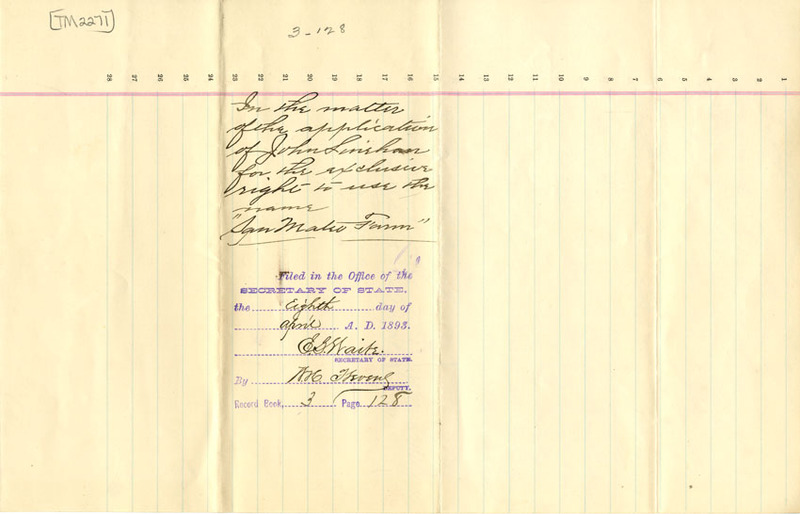 [TM2271]
3-128
28 27 26 25 24 23 22 21 20 19 18 17 16 15 14 13 12 11 10 9 8 7 6 5 4 3 2 1
In the matter
of the application
of John Linehan
for the exclusive
right to use the
name
"San Mateo Farm"
Filed in the Office of the
SECRETARY OF STATE,
the Eighth day of
April A. D. 1893.
E.G. Waite.
SECRETARY OF STATE.
By
DEPUTY.
Record Book, 3 Page 128